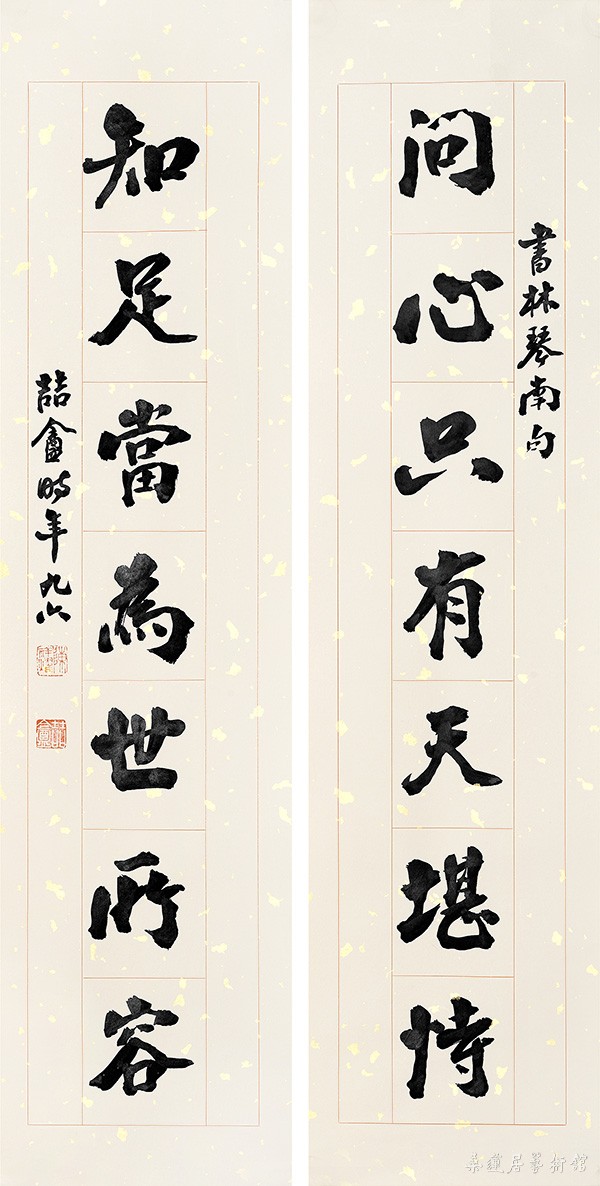 書林琴南句
問心只有天堪恃
知足當為世所容
喆盦時年九六
喆盦